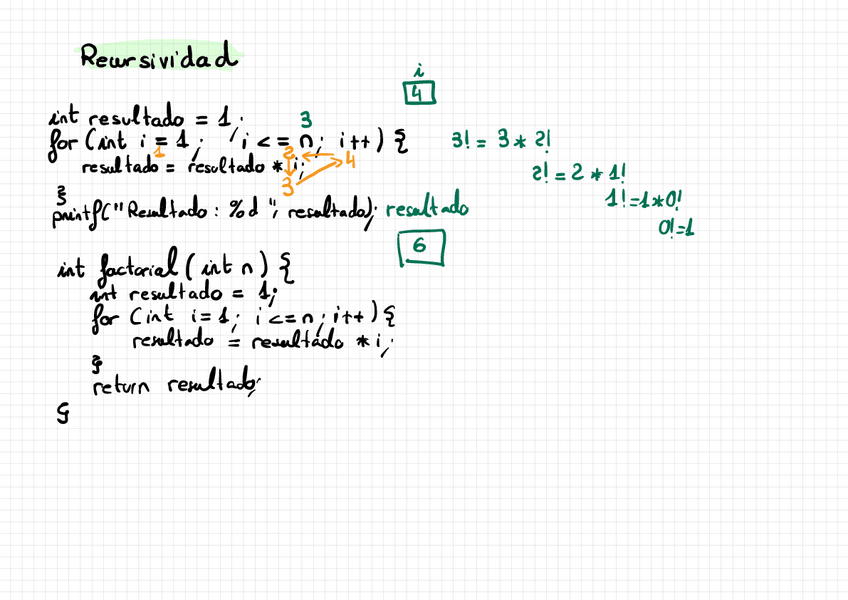 Recursividad
i
4
int resultado = 1;
3
for (int i = 1; i <= n; i++) {
1 2 4
resultado = resultado * i;
3
}
printf("Resultado: %d", resultado);
resultado
6
3! = 3 * 2!
2! = 2 * 1!
1! = 1 * 0!
0! = 1
int factorial (int n) {
int resultado = 1;
for (int i = 1; i <= n; i++) {
resultado = resultado * i;
}
return resultado;
}